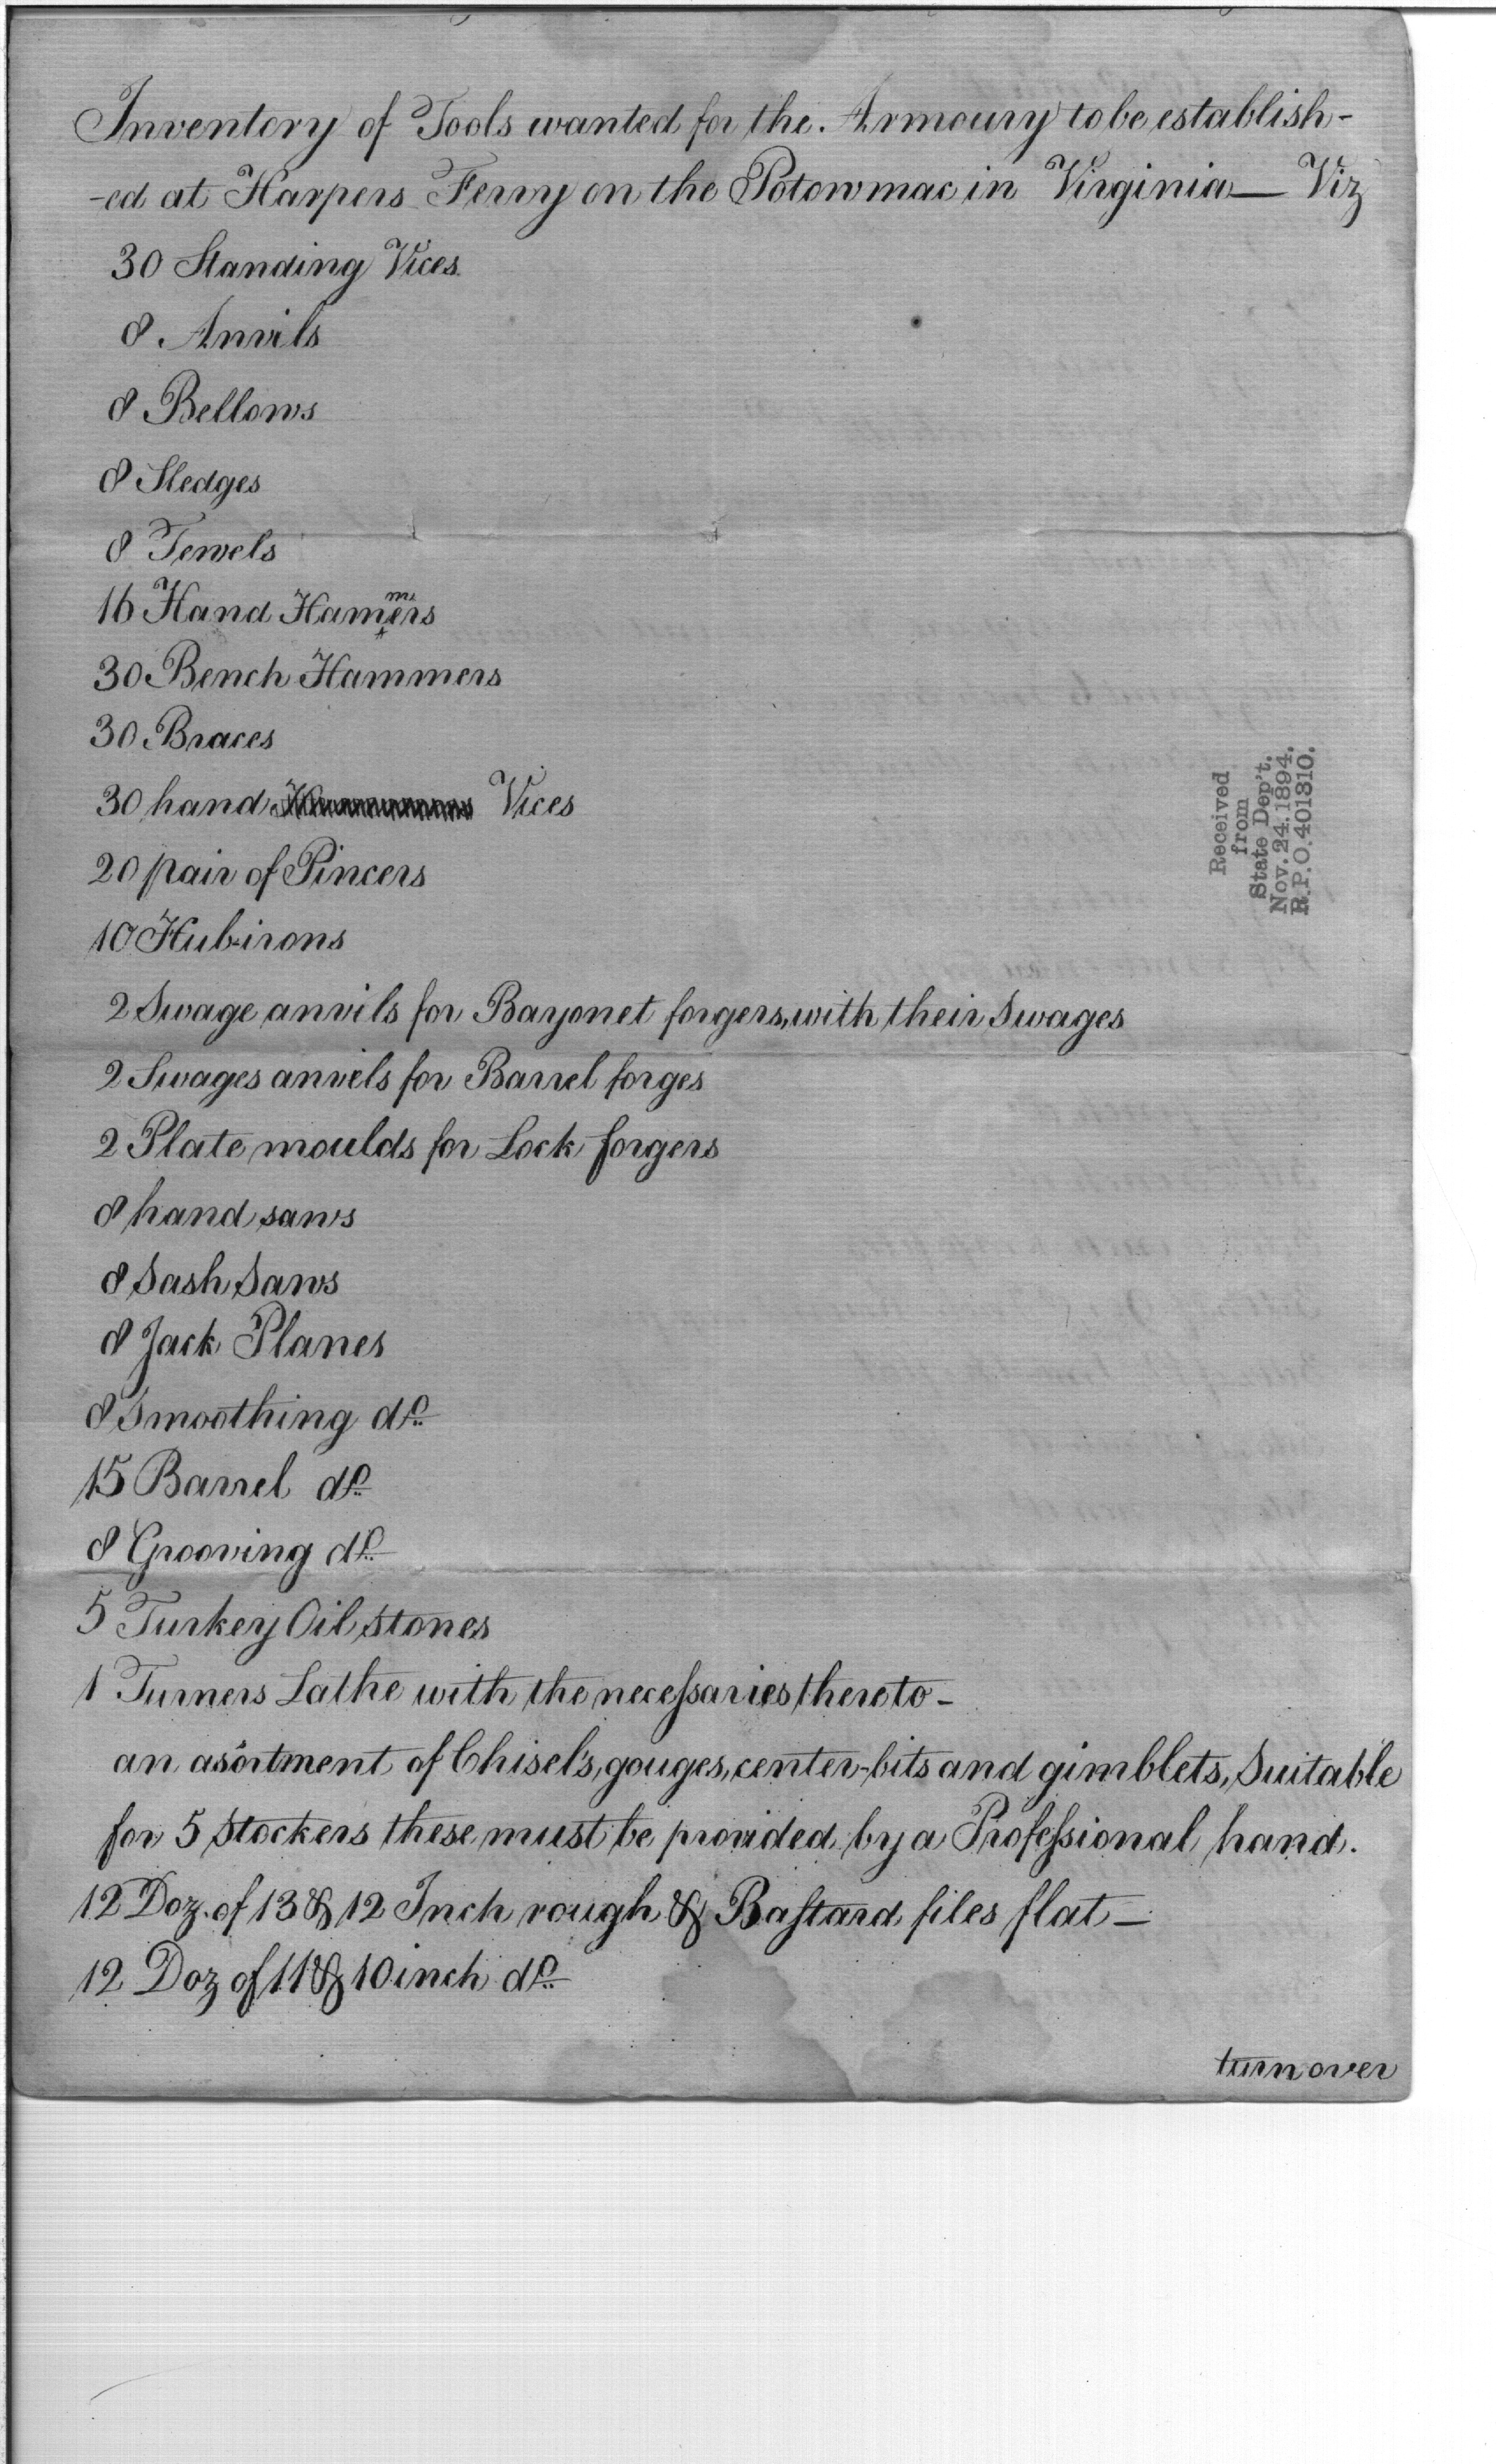 Inventory of Tools wanted for the Armoury to be establish-
-ed at Harpers Ferry on the Potowmac in Virginia — Viz
30 Standing Vices
8 Anvils
8 Bellows
8 Sledges
8 Tewels
16 Hand Hammers
30 Bench Hammers
30 Braces
30 hand Vices
20 pair of Pincers
10 Hub-irons
2 Swage anvils for Bayonet forgers, with their Swages
2 Swages anvels for Barrel forges
2 Plate moulds for Lock forgers
8 hand saws
8 Sash Saws
8 Jack Planes
8 Smoothing do
15 Barrel do
8 Grooving do
5 Turkey Oil stones
1 Turners Lathe with the neceſsaries thereto -
an asortment of Chisels, gouges, center-bits and gimblets, Suitable
for 5 Stockers these must be provided by a Profeſsional hand.
12 Doz. of 13 & 12 Inch rough & Baſtard files flat —
12 Doz of 11 & 10 inch do
turn over
Received
from
State Dep't.
Nov. 24. 1894.
R.P.O. 401310.